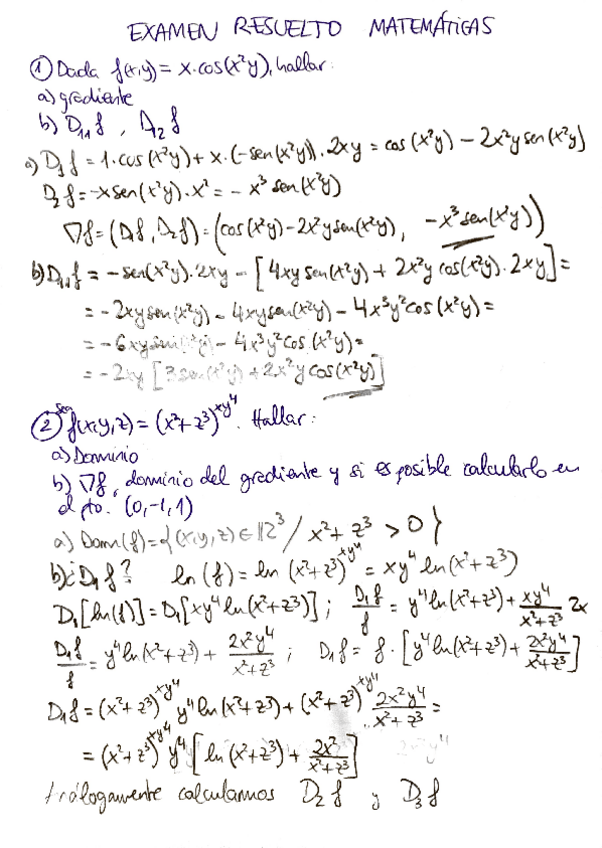 EXAMEN RESUELTO MATEMÁTICAS
① Dada f(x,y) = x·cos(x²y), hallar:
a) gradiente
b) D₁₁f , D₁₂f
a) D₁f = 1·cos(x²y) + x·(-sen(x²y))·2xy = cos(x²y) - 2x²y sen(x²y)
D₂f = -x sen(x²y)·x² = -x³ sen(x²y)
∇f = (D₁f, D₂f) = (cos(x²y) - 2x²y sen(x²y), -x³ sen(x²y))
b) D₁₁f = -sen(x²y)·2xy - [4xy sen(x²y) + 2x²y cos(x²y)·2xy] =
= -2xy sen(x²y) - 4xy sen(x²y) - 4x³y² cos(x²y) =
= -6xy sen(x²y) - 4x³y² cos(x²y) =
= -2xy [3 sen(x²y) + 2x²y cos(x²y)]
② Sea f(x,y,z) = (x²+z³)^xy⁴. Hallar:
a) Dominio
b) ∇f, dominio del gradiente y si es posible calcularlo en
el pto. (0,-1,1)
a) Dom(f) = {(x,y,z) ∈ ℝ³ / x²+z³ > 0}
b) ¿D₁f? ln(f) = ln (x²+z³)^xy⁴ = xy⁴ ln(x²+z³)
D₁[ln(f)] = D₁[xy⁴ ln(x²+z³)] ; D₁f/f = y⁴ ln(x²+z³) + xy⁴/(x²+z³) 2x
D₁f/f = y⁴ ln(x²+z³) + 2x²y⁴/(x²+z³) ; D₁f = f·[y⁴ ln(x²+z³) + 2x²y⁴/(x²+z³)]
D₁f = (x²+z³)^xy⁴ y⁴ ln(x²+z³) + (x²+z³)^xy⁴ 2x²y⁴/(x²+z³) =
= (x²+z³)^xy⁴ y⁴ [ln(x²+z³) + 2x²/(x²+z³)]
Análogamente calculamos D₂f y D₃f